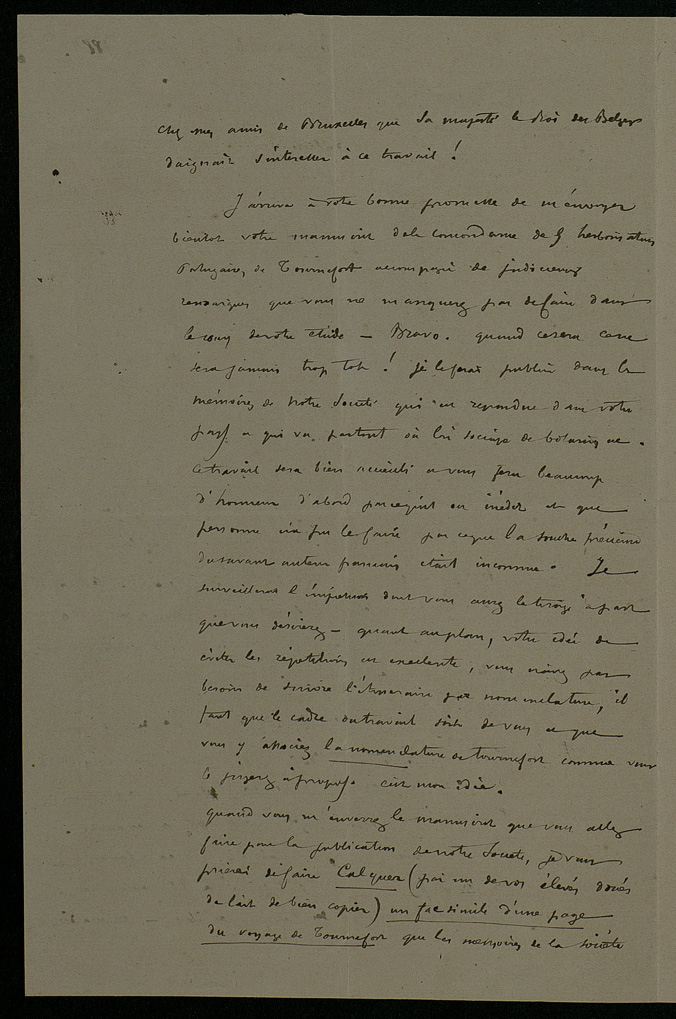 chez mes amis de Bruxelles que Sa majesté le Roi des Belges
daignait s'interesser à ce travail !
J'arrive à votre bonne promesse de m'envoyer
bientot votre manuscrit de la concordance de herborisations
Portugaises de Tournefort accompagné de judicieuses
remarques que vous ne manquerez pas de faire dans
le cours de votre étude — Bravo. quand ce sera ce ne
sera jamais trop tot ! je le ferai publier dans les
mémoires de notre Société qui est repandue dans votre
pays et qui va partout où l'on s'occupe de botanique.
Ce travail sera bien accueilli et vous fera beaucoup
d'honneur d'abord parcequ'il est inédit et que
personne n'a pu le faire parceque la source précieuse
du savant auteur français était inconnue. Je
surveillerai l'impression dont vous aurez le tirage à part
que vous désirerez — quant au plan, votre idée de
éviter les répétitions est excellente, vous n'avez pas
besoin de suivre l'itineraire nomenclature, il
faut que le cadre du travail soit de vous et que
vous y associiez la nomenclature de tournefort comme vous
le jugerez à propos. c'est mon idée.
quand vous m'enverrez le manuscrit que vous allez
faire pour la publication de notre Société, je vous
prierai de faire Calquer (par un de vos élèves doués
de l'art de bien copier) un facsimile d'une page
du voyage de Tournefort que les mémoires de la société